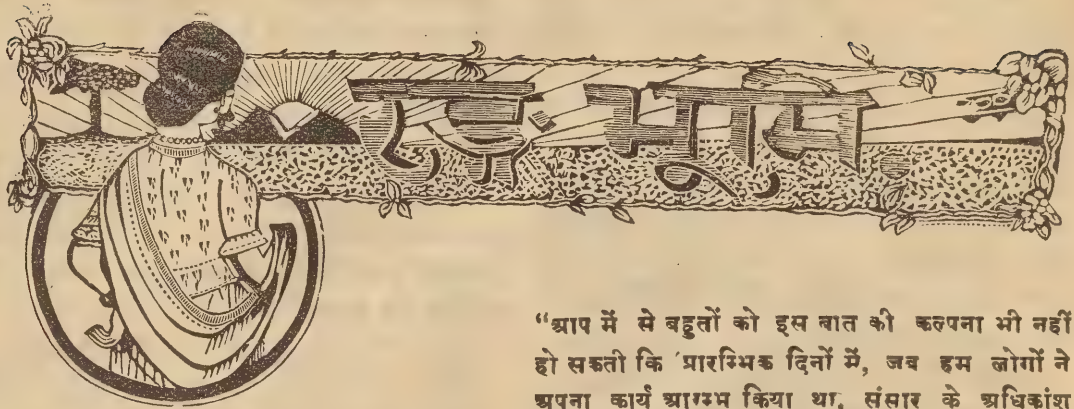 रङ्ग भूमि
“आप में से बहुतों को इस बात की कल्पना भी नहीं
हो सकती कि प्रारम्भिक दिनों में, जब हम लोगों ने
अपना कार्य आरम्भ किया था, संसार के अधिकांश